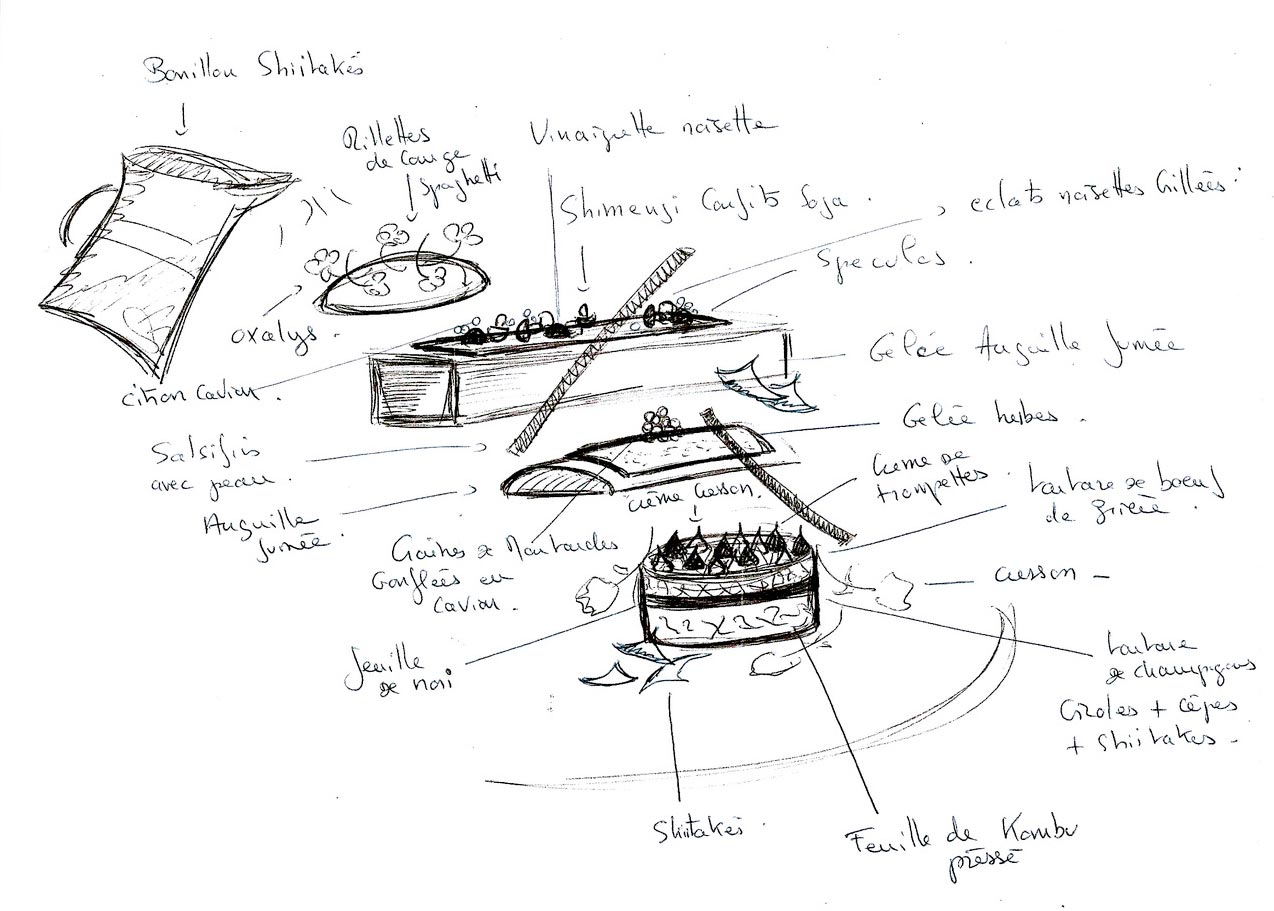 Bouillon Shiitakés
Rillettes
de Courge
Spaghetti
Vinaigrette noisette
Shimenji Confits Soja .
eclats noisettes Grillées
Speculos .
oxalys .
citron Caviar .
Gelée Anguille fumée
Salsifis
avec peau .
Gelée herbes .
Anguille
fumée .
crème Cresson .
Crème de
trompettes .
tartare de boeuf
de
Graines de Moutardes
Gonflées en
Caviar .
cresson -
feuille
de nori
tartare
de champignons
Giroles + Cèpes
+ Shiitakes .
Shiitakés .
Feuille de Kombu
préssé